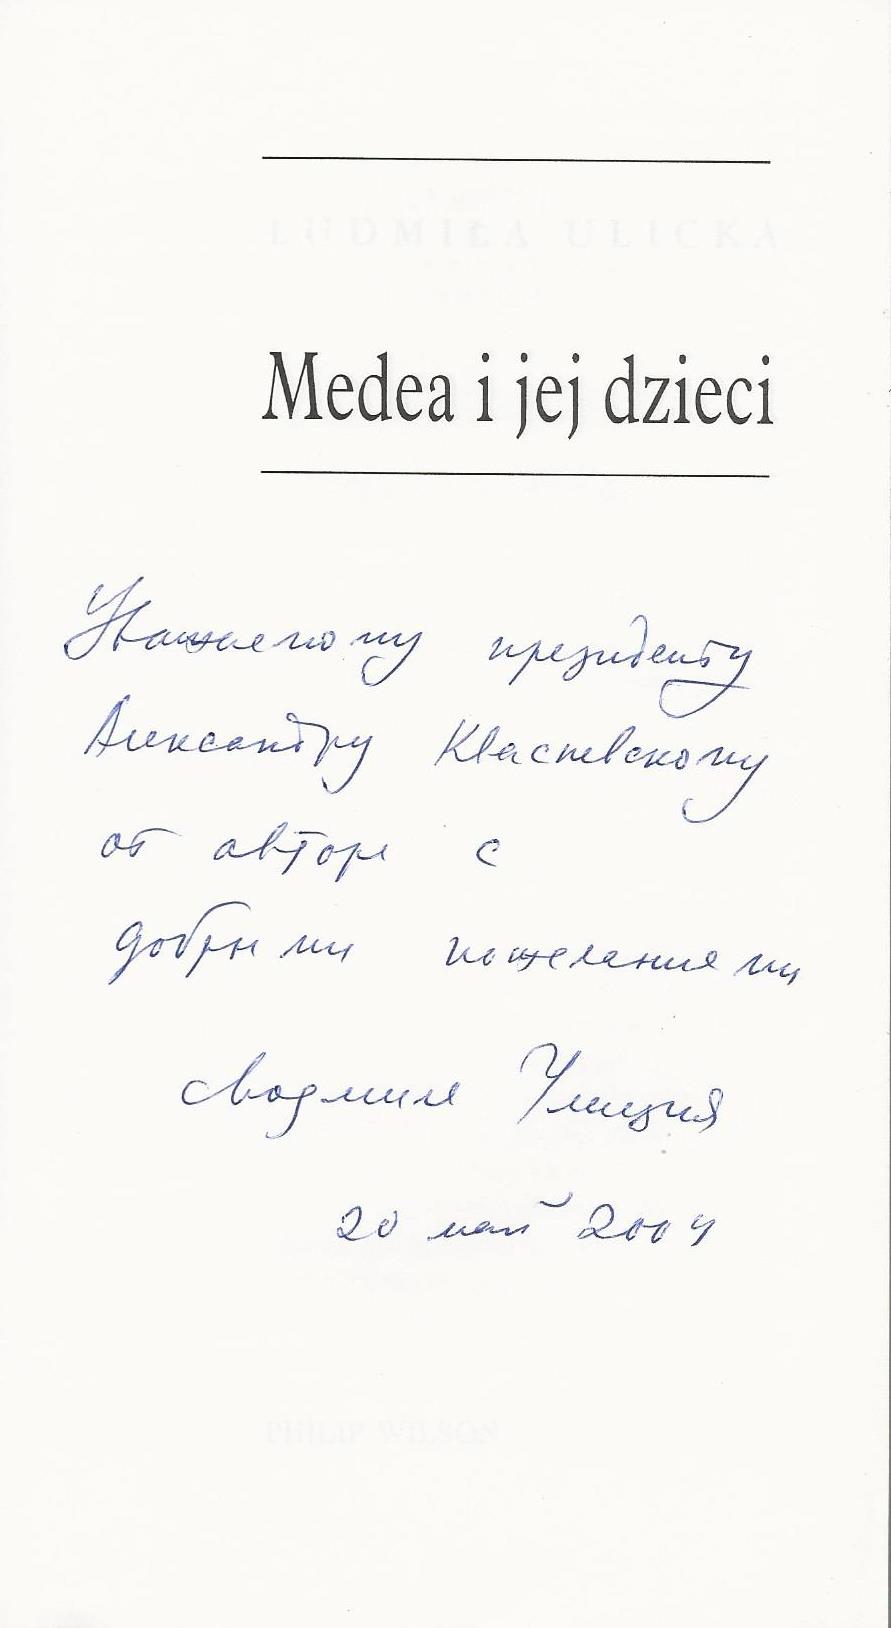 LUDMIŁA ULICKA
Medea i jej dzieci
Уважаемому президенту
Александру Квасневскому
от автора с
добрыми пожеланиями
Людмила Улицкая
20 май 2004
PHILIP WILSON